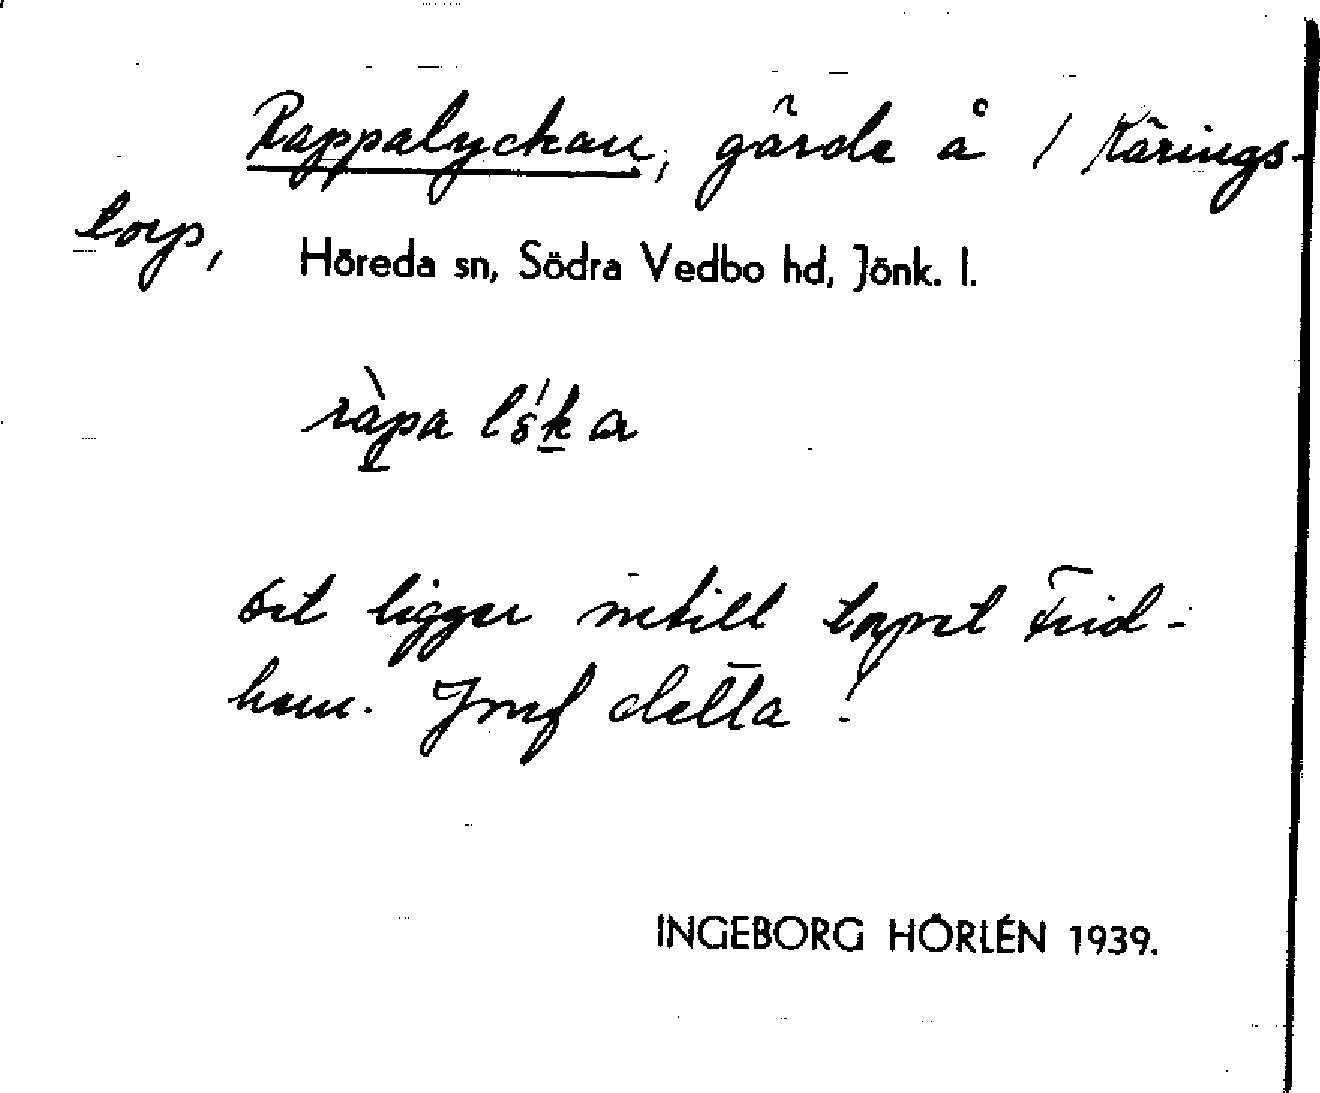 Rappalyckan, gärde å / Kärings-
torp,
Höreda sn, Södra Vedbo hd, Jönk. l.
ràpa lǿka
Det ligger intill torpet Frid-
hem. Jmf detta!
INGEBORG HÖRLÉN 1939.